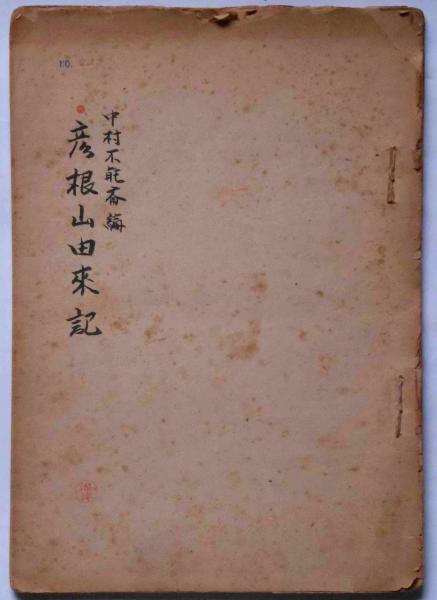 NO.
中村不能斎編
彦根山由来記